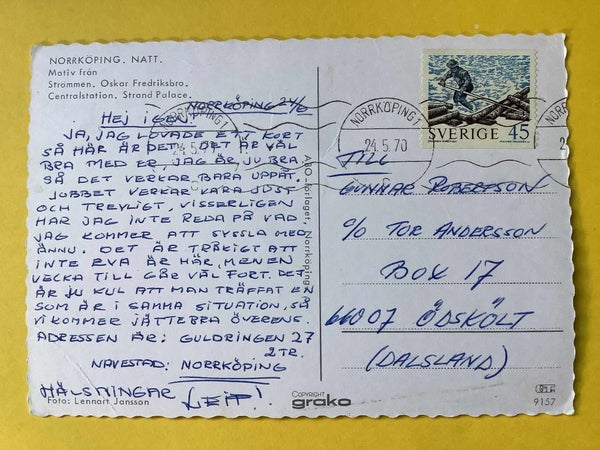 NORRKÖPING. NATT.
Motiv från
Strömmen, Oskar Fredriksbro.
Centralstation. Strand Palace.
NORRKÖPING 24/5
HEJ IGEN!
JA, JAG LOVADE ETT KORT
SÅ HÄR ÄR DET. DET ÄR VÄL
BRA MED ER, JAG ÄR JU BRA
SÅ DET VERKAR BARA UPPÅT.
JOBBET VERKAR VARA JUST
OCH TREVLIGT, VISSERLIGEN
HAR JAG INTE REDA PÅ VAD
JAG KOMMER ATT SYSSLA MED
ÄNNU. DET ÄR TRÅKIGT ATT
INTE EVA ÄR HÄR, MEN EN
VECKA TILL GÅR VÄL FORT. DET
ÄR JU KUL ATT MAN TRÄFFAT EN
SOM ÄR I SAMMA SITUATION, SÅ
VI KOMMER JÄTTEBRA ÖVERENS.
ADRESSEN ÄR: GULDRINGEN 27
2 TR.
NAVESTAD: NORRKÖPING
HÄLSNINGAR LEIF!
Foto: Lennart Jansson
AVO-förlaget, Norrköping
COPYRIGHT
grako
NORRKÖPING 1
24.5.70
NORRKÖPING 1
24.5.70
NORRKÖPING
2
SVERIGE 45
TILL
GUNNAR ROBERTSON
c/o TOR ANDERSSON
BOX 17
66007 ÖDSKÖLT
(DALSLAND)
9157